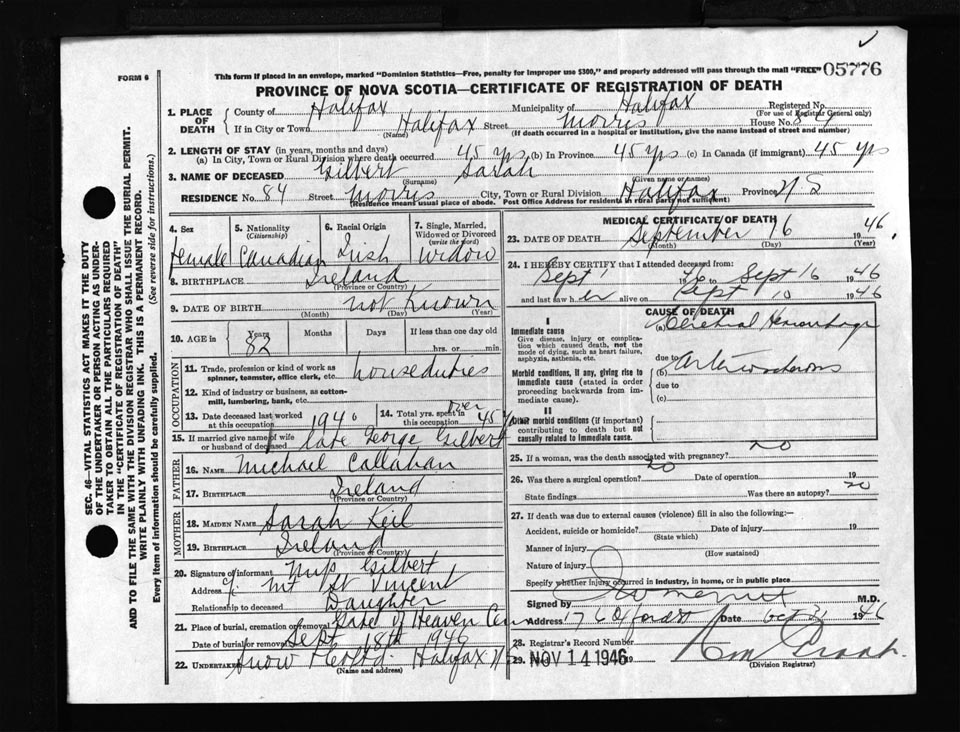 FORM 6
This form if placed in an envelope, marked "Dominion Statistics—Free, penalty for improper use $300," and properly addressed will pass through the mail "FREE" 05776
PROVINCE OF NOVA SCOTIA—CERTIFICATE OF REGISTRATION OF DEATH
1. PLACE OF DEATH
County of Halifax Municipality of Halifax Registered No.
(For use of Registrar General only)
If in City or Town Halifax Street Morris House No. 84
(Name) (If death occurred in a hospital or institution, give the name instead of street and number)
2. LENGTH OF STAY (in years, months and days)
(a) In City, Town or Rural Division where death occurred 45 yrs (b) In Province 45 yrs (c) In Canada (if immigrant) 45 yrs
3. NAME OF DECEASED Gilbert Sarah
(Surname) (Given name or names)
RESIDENCE No. 84 Street Morris City, Town or Rural Division Halifax Province N S
(Residence means usual place of abode. Post Office Address for residents in rural parts not sufficient)
4. Sex 5. Nationality (Citizenship) 6. Racial Origin 7. Single, Married, Widowed or Divorced (write the word)
Female Canadian Irish Widow
8. BIRTHPLACE Ireland
(Province or Country)
9. DATE OF BIRTH not Known
(Month) (Day) (Year)
10. AGE in Years Months Days If less than one day old
82 hrs. or min.
OCCUPATION
11. Trade, profession or kind of work as spinner, teamster, office clerk, etc. house duties
12. Kind of industry or business, as cotton-mill, lumbering, bank, etc.
13. Date deceased last worked at this occupation 1946 14. Total yrs. spent in this occupation over 45 y
15. If married give name of wife or husband of deceased late George Gilbert
FATHER
16. NAME Michael Callahan
17. BIRTHPLACE Ireland
(Province or Country)
MOTHER
18. MAIDEN NAME Sarah Keil
19. BIRTHPLACE Ireland
(Province or Country)
20. Signature of informant Miss Gilbert
Address c/o Mt St Vincent
Relationship to deceased Daughter
21. Place of burial, cremation or removal Gate of Heaven Cem
Date of burial or removal Sept 18th 1946
22. Undertaker Snow & Co Ltd. Halifax N S
(Name and address)
MEDICAL CERTIFICATE OF DEATH
23. DATE OF DEATH September 16 1946
(Month) (Day) (Year)
24. I HEREBY CERTIFY that I attended deceased from:
Sept 1 1946 to Sept 16 1946
and last saw her alive on Sept 10 1946
CAUSE OF DEATH
I
Immediate cause
Give disease, injury or complication which caused death, not the mode of dying, such as heart failure, asphyxia, asthenia, etc.
(a) Cerebral Hemorrhage
due to
Morbid conditions, if any, giving rise to immediate cause (stated in order proceeding backwards from immediate).
(b) Arteriosclerosis
due to
(c)
II
Other morbid conditions (if important) contributing to death but not causally related to immediate cause.
25. If a woman, was the death associated with pregnancy? no
26. Was there a surgical operation? no Date of operation 19
State findings Was there an autopsy? no
27. If death was due to external causes (violence) fill in also the following:—
Accident, suicide or homicide? Date of injury 19
(State which)
Manner of injury
(How sustained)
Nature of injury
Specify whether injury occurred in industry, in home, or in public place
Signed by M.D.
Address 176 Oxford St Date Oct 31 1946
28. Registrar's Record Number
29. NOV 14 1946 19
(Division Registrar)
SEC. 46—VITAL STATISTICS ACT MAKES IT THE DUTY
OF THE UNDERTAKER OR PERSON ACTING AS UNDER-
TAKER TO OBTAIN ALL THE PARTICULARS REQUIRED
IN THE "CERTIFICATE OF REGISTRATION OF DEATH"
AND TO FILE THE SAME WITH THE DIVISION REGISTRAR WHO SHALL ISSUE THE BURIAL PERMIT.
WRITE PLAINLY WITH UNFADING INK. THIS IS A PERMANENT RECORD.
Every item of information should be carefully supplied. (See reverse side for instructions.)